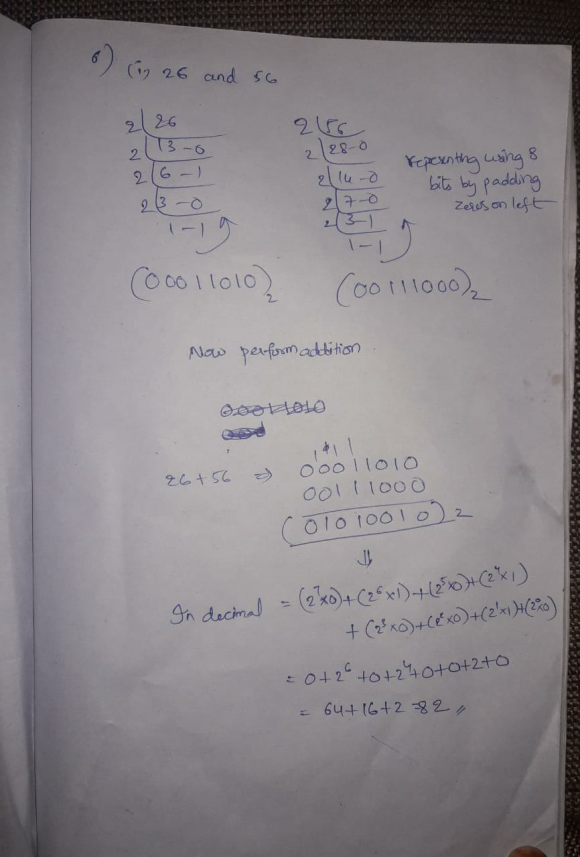 6) (i) 26 and 56
2 | 26
2 | 13 - 0
2 | 6 - 1
2 | 3 - 0
1 - 1
(00011010)2
2 | 56
2 | 28-0
2 | 14-0
2 | 7-0
2 | 3-1
1-1
(00111000)2
repesenting using 8
bits by padding
zeros on left
Now perform addition.
26+56 ⇒ 00011010
00111000
(01010010)2
⇓
In decimal = (2^7×0)+(2^6×1)+(2^5×0)+(2^4×1)
+(2^3×0)+(2^2×0)+(2^1×1)+(2^0×0)
= 0+2^6+0+2^4+0+0+2+0
= 64+16+2=82 //